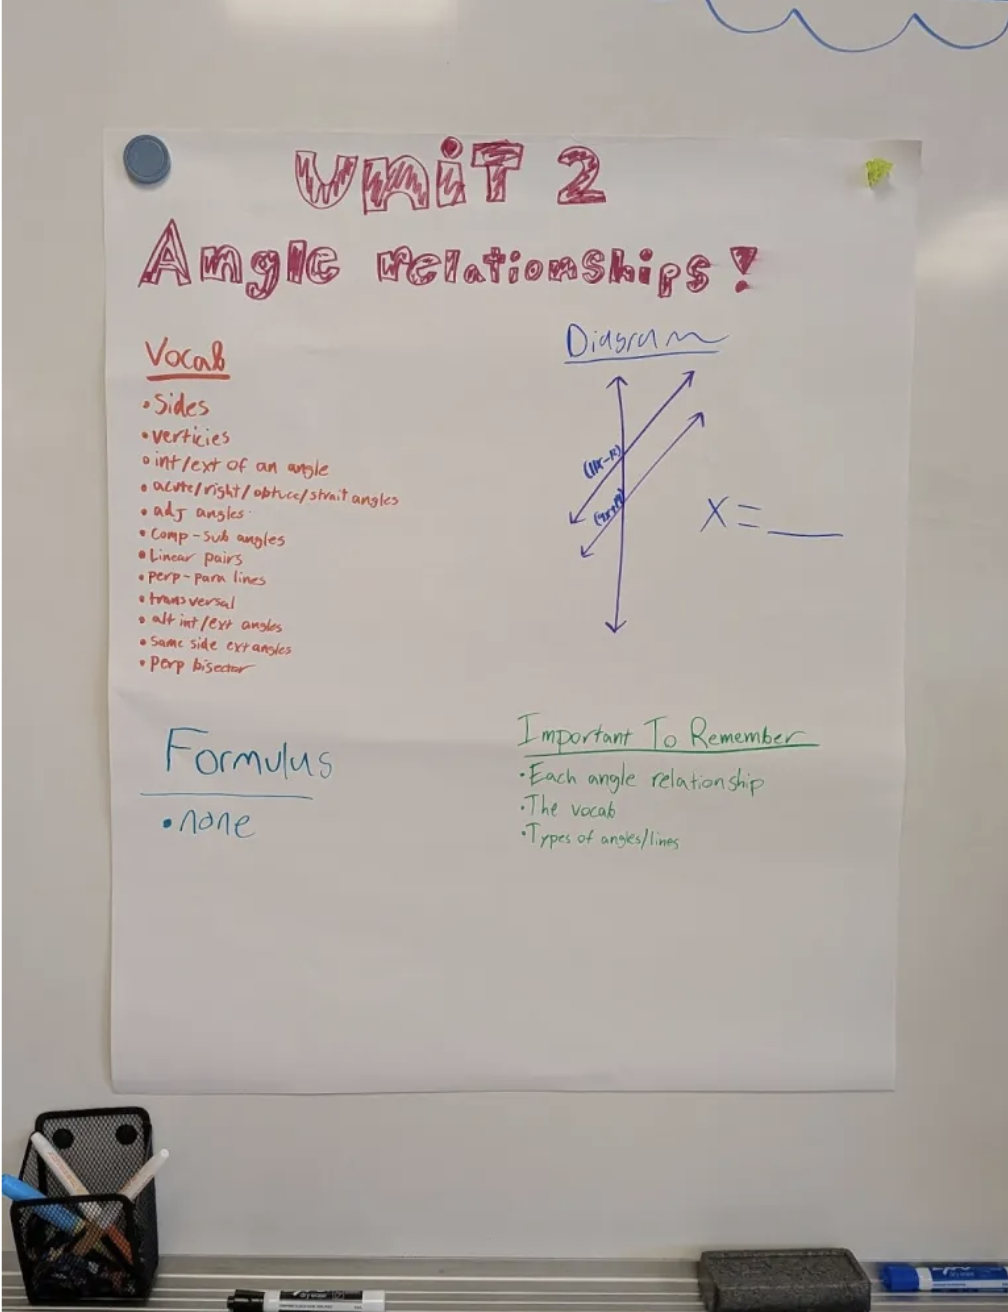 UNIT 2
Angle relationships!
Vocab
•Sides
•verticies
•int/ext of an angle
•acute/right/obtuce/strait angles
•adj angles
•Comp-sub angles
•Linear pairs
•perp-para lines
•transversal
•alt int/ext angles
•Same side ext angles
•Perp bisector
Diagram
X = ___
Formulus
•none
Important To Remember
•Each angle relationship
•The vocab
•Types of angles/lines